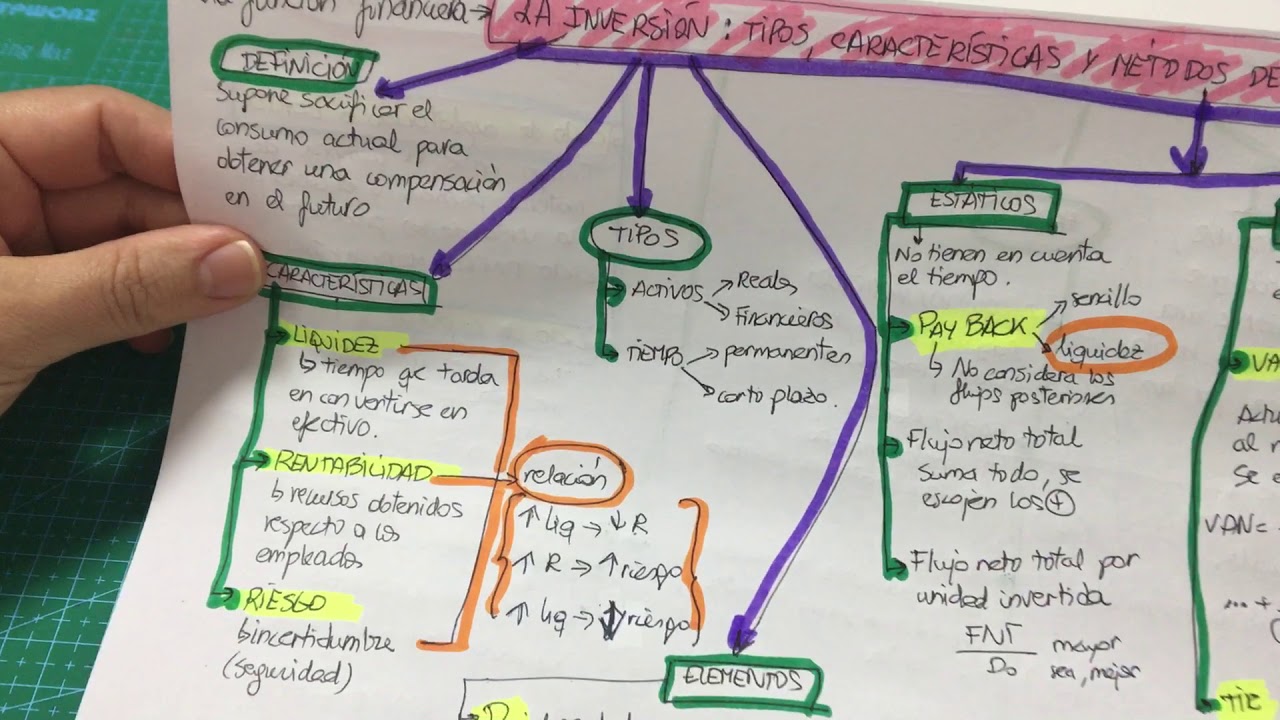 función financiera →
LA INVERSIÓN: TIPOS, CARACTERÍSTICAS Y MÉTODOS DE
DEFINICIÓN
Supone sacrificar el
consumo actual para
obtener una compensación
en el futuro
CARACTERÍSTICAS
LIQUIDEZ
↳ tiempo qe tarda
en convertirse en
efectivo.
RENTABILIDAD
↳ recursos obtenidos
respecto a los
empleados
RIESGO
↳ incertidumbre
(seguridad)
relación
↑ Liq → ↓ R
↑ R → ↑ riesgo
↑ Liq → ↓ riesgo
TIPOS
ACTIVOS → Reales
→ Financieros
TIEMPO → permanentes
→ corto plazo.
ELEMENTOS
ESTÁTICOS
No tienen en cuenta
el tiempo.
PAY BACK → sencillo
→ liquidez
↳ No considera los
flujos posteriores
Flujo neto total
suma todo, se
escojen los ⊕
Flujo neto total por
unidad invertida
FNT / Do mayor
sea, mejor
VAN
al
Se
VAN=
...+
TIR